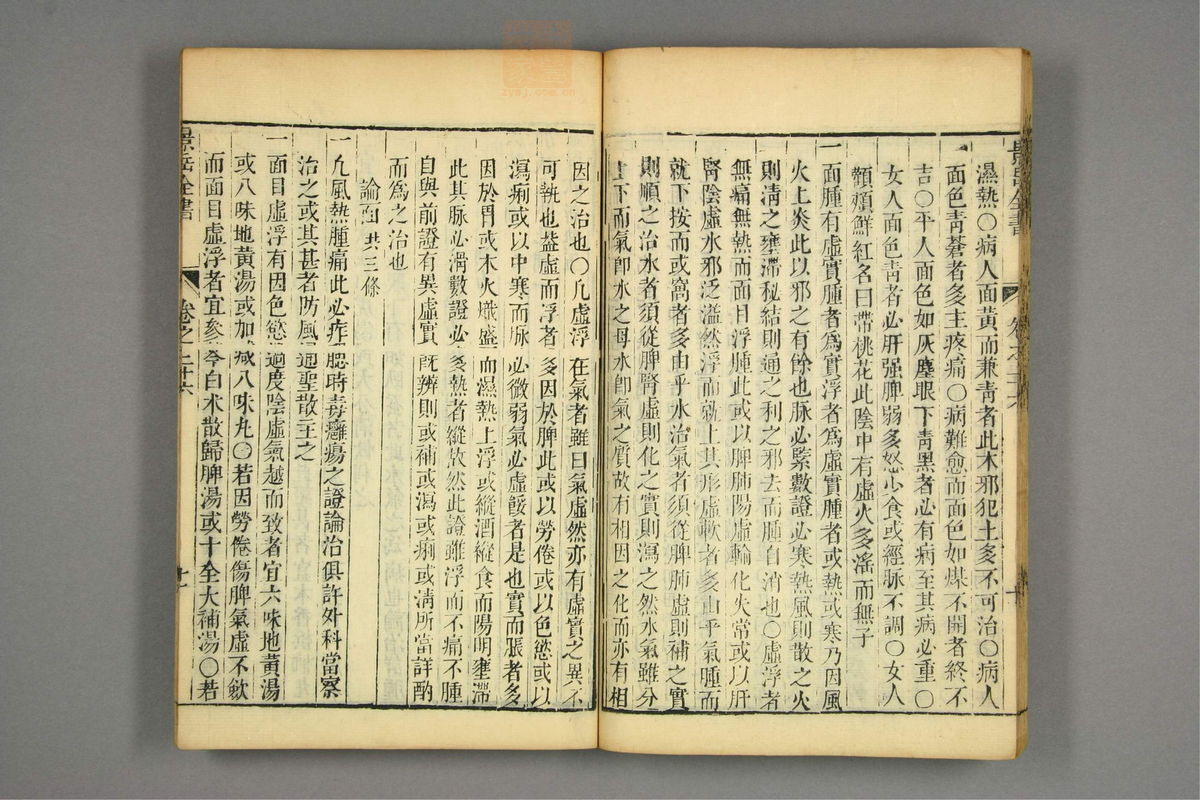 濕熱〇病人面黃而兼青者此木邪犯土多不可治〇病人
面色青蒼者多主疼痛〇病難愈而面色如煤不開者終不
吉〇平人面色如灰塵眼下青黑者必有病至其病必重〇
女人面色青者必肝强脾弱多怒少食或經脈不調〇女人
顴頰鮮紅名曰帶桃花此陰中有虛火多淫而無子
一面腫有虛實腫者爲實浮者爲虛實腫者或熱或寒乃因風
火上炎此以邪之有餘也脉必緊數證必寒熱風則散之火
則清之壅滯秘結則通之利之邪去而腫自消也〇虛浮者
無痛無熱而面目浮腫此或以脾肺陽虛輸化失常或以肝
腎陰虛水邪泛溢然浮而就上其形虛軟者多由乎氣腫而
就下按而或窩者多由乎水治氣者須從脾肺虛則補之實
則順之治水者須從脾腎虛則化之實則瀉之然水氣雖分
上下而氣卽水之母水卽氣之質故有相因之化而亦有相
因之治也〇凡虛浮在氣者雖曰氣虛然亦有虛實之異不
可執也葢虛而浮者多因於脾此或以勞倦或以色慾或以
瀉痢或以中寒而脉必微弱氣必虛餒者是也實而脹者多
因於胃或木火熾盛而濕熱上浮或縱酒縱食而陽明壅滯
此其脉必滑數證必多熱者縱放然此證雖浮而不痛不腫
自與前證有異虛實旣辨則或補或瀉或痢或清所當詳酌
而爲之治也
論面共三條
一凡風熱腫痛此必痄腮時毒癰瘍之證論治俱詳外科當察
治之或其甚者防風通聖散主之
一面目虛浮有因色慾過度陰虛氣越而致者宜六味地黃湯
或八味地黃湯或加減八味丸〇若因勞倦傷脾氣虛不斂
而面目虛浮者宜參苓白朮散歸脾湯或十全大補湯〇若
景岳全書
卷之二十六
十一
景岳全書
卷之二十六
十
zysj.com.cn